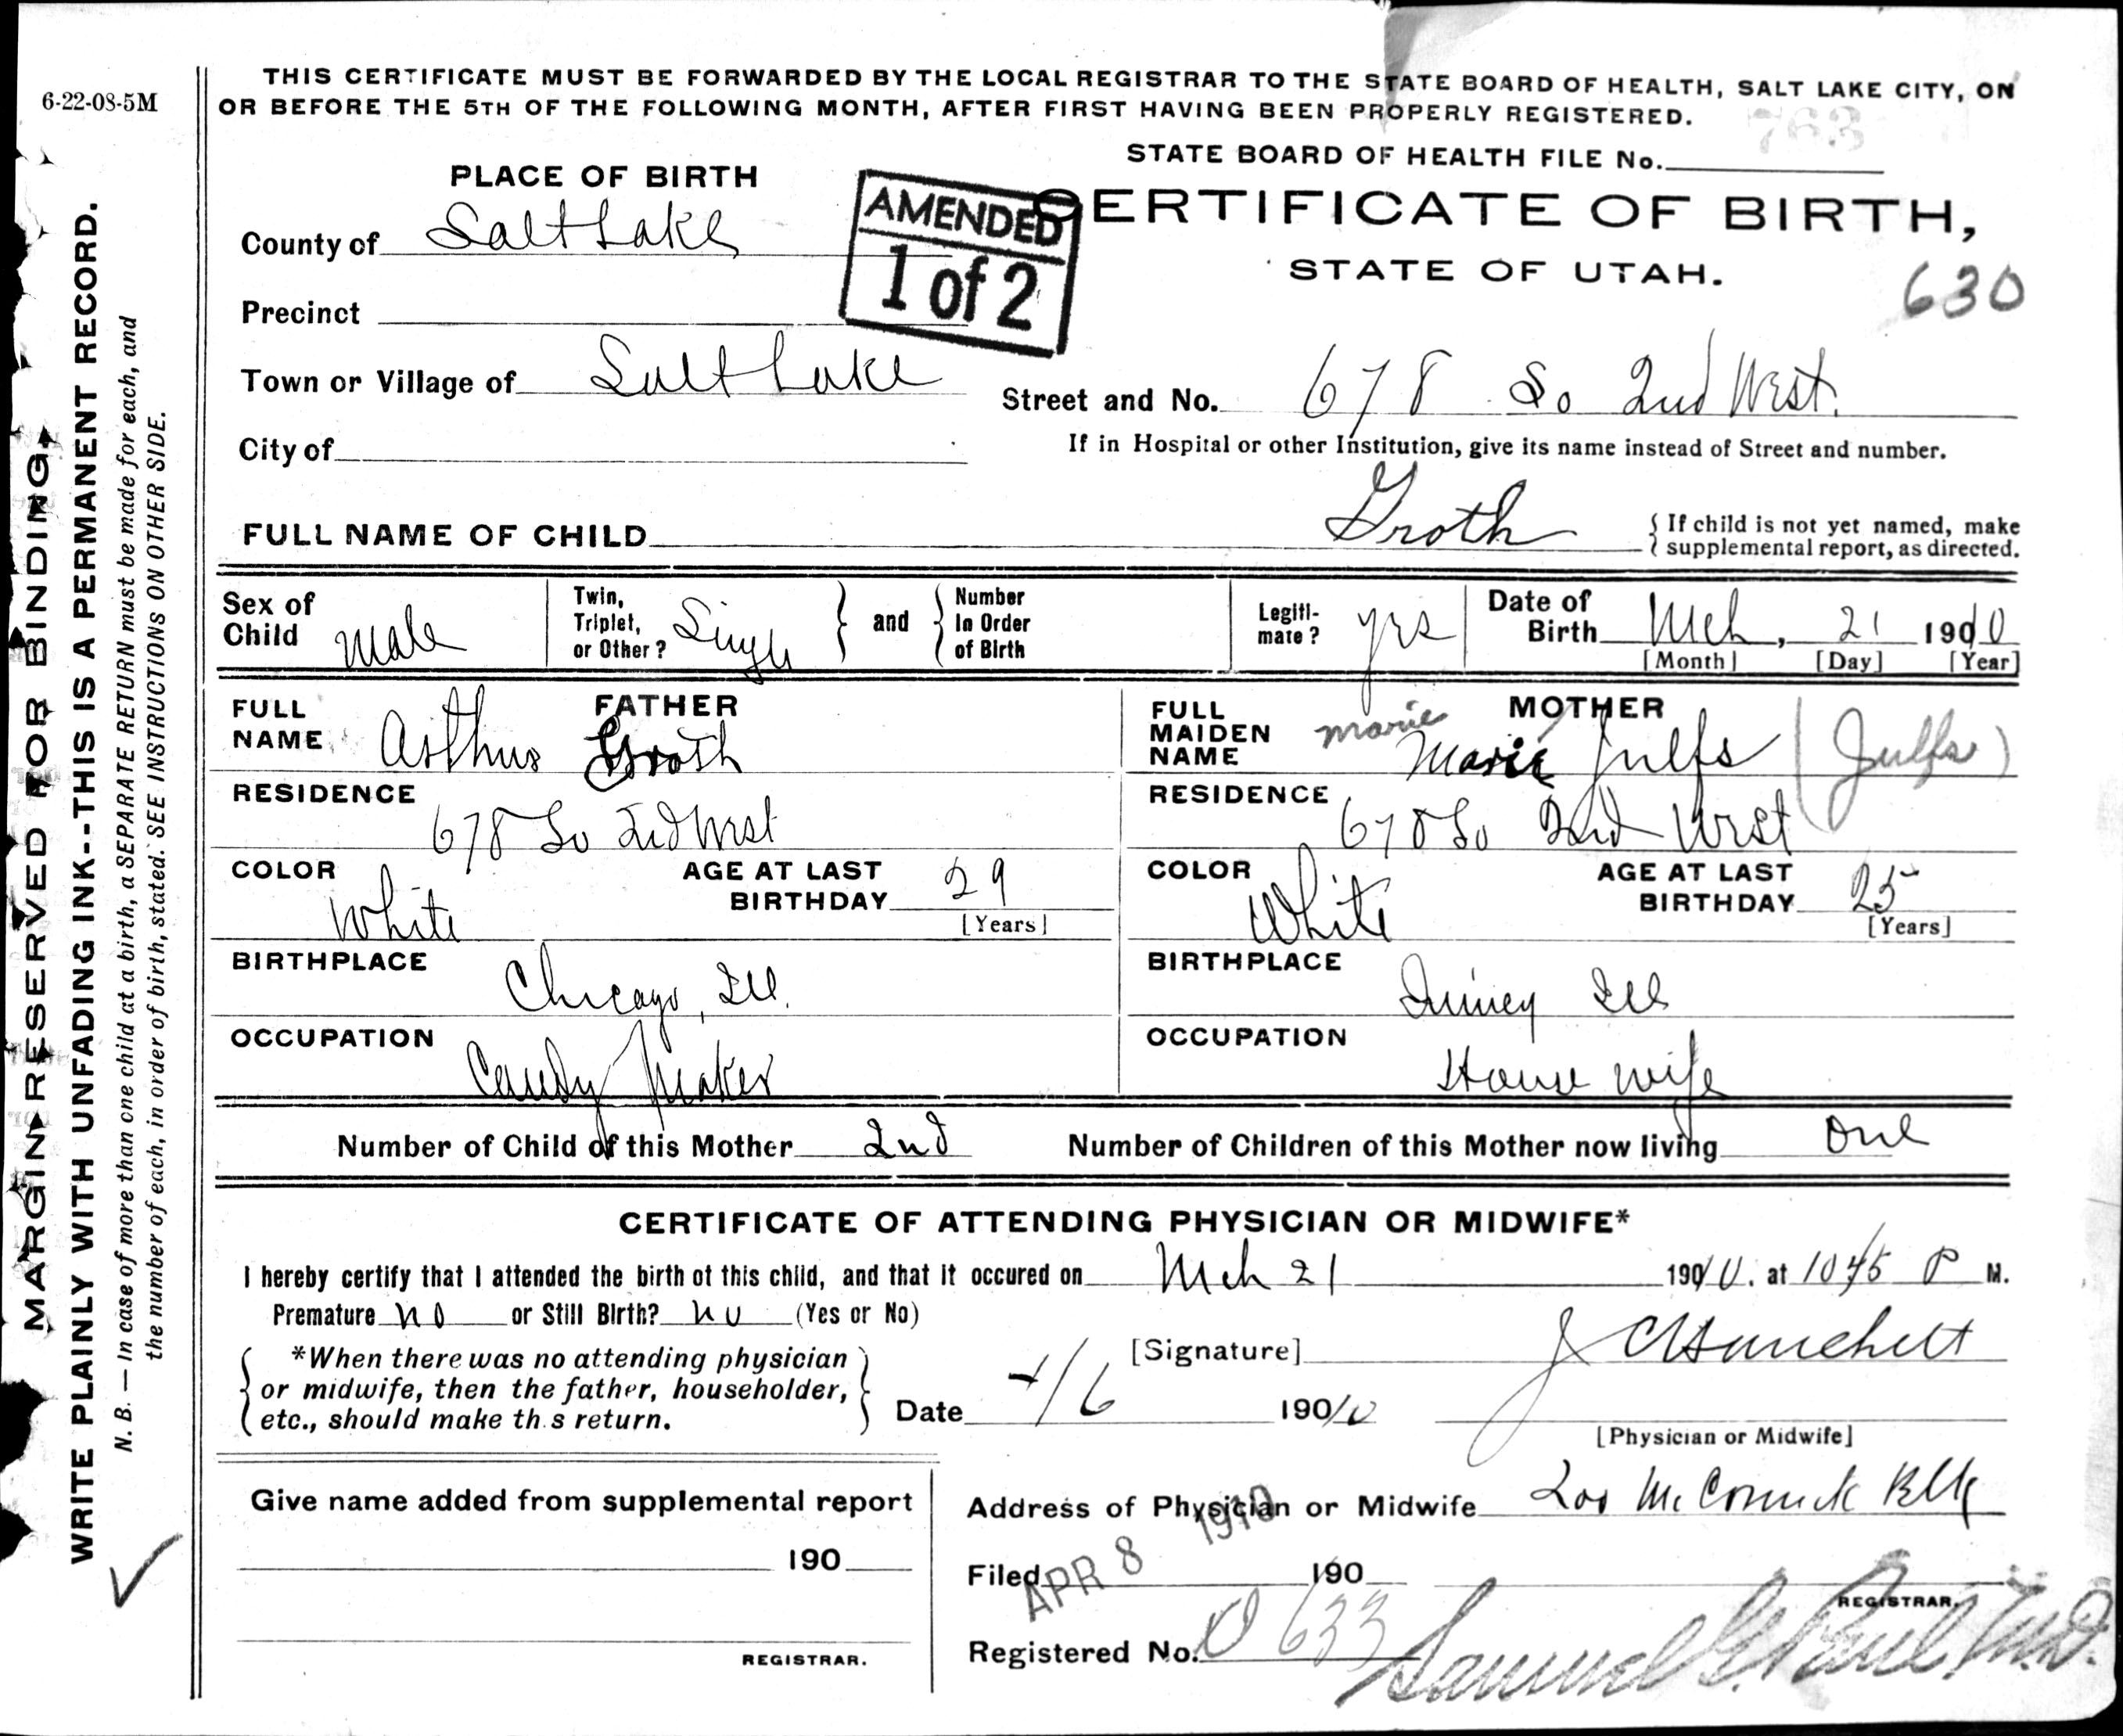 6-22-08-5M
THIS CERTIFICATE MUST BE FORWARDED BY THE LOCAL REGISTRAR TO THE STATE BOARD OF HEALTH, SALT LAKE CITY, ON
OR BEFORE THE 5TH OF THE FOLLOWING MONTH, AFTER FIRST HAVING BEEN PROPERLY REGISTERED.
763
STATE BOARD OF HEALTH FILE No.
PLACE OF BIRTH
CERTIFICATE OF BIRTH,
STATE OF UTAH.
630
AMENDED
1 of 2
County of Salt Lake
Precinct
Town or Village of Salt Lake
Street and No. 678 So 2nd West.
City of
If in Hospital or other Institution, give its name instead of Street and number.
FULL NAME OF CHILD Groth
{ If child is not yet named, make
supplemental report, as directed.
Sex of Child Male
Twin, Triplet, or Other? Single } and { Number In Order of Birth
Legiti-mate? yes
Date of Birth Mch, 21 1910
[Month] [Day] [Year]
FATHER
FULL NAME Arthur Groth
RESIDENCE 678 So 2nd West
COLOR White
AGE AT LAST BIRTHDAY 29
[Years]
BIRTHPLACE Chicago, Ill.
OCCUPATION Candy Maker
MOTHER
FULL MAIDEN NAME marie Marie Julfs (Julfs)
RESIDENCE 678 So 2nd West
COLOR White
AGE AT LAST BIRTHDAY 25
[Years]
BIRTHPLACE Quincy Ill
OCCUPATION House wife
Number of Child of this Mother 2nd Number of Children of this Mother now living One
CERTIFICATE OF ATTENDING PHYSICIAN OR MIDWIFE*
I hereby certify that I attended the birth of this child, and that it occured on Mch 21 1910. at 1045 P M.
Premature no or Still Birth? no (Yes or No)
*When there was no attending physician
or midwife, then the father, householder,
etc., should make th s return.
[Signature] J C Hanchett
Date 4/6 1910
[Physician or Midwife]
Give name added from supplemental report
190
REGISTRAR.
Address of Physician or Midwife McCornick Blk
Filed APR 8 1910 190
REGISTRAR.
Registered No. 633
Samuel G. Paul M.D.
MARGIN RESERVED FOR BINDING.
WRITE PLAINLY WITH UNFADING INK--THIS IS A PERMANENT RECORD.
N. B. — In case of more than one child at a birth, a SEPARATE RETURN must be made for each, and
the number of each, in order of birth, stated. SEE INSTRUCTIONS ON OTHER SIDE.